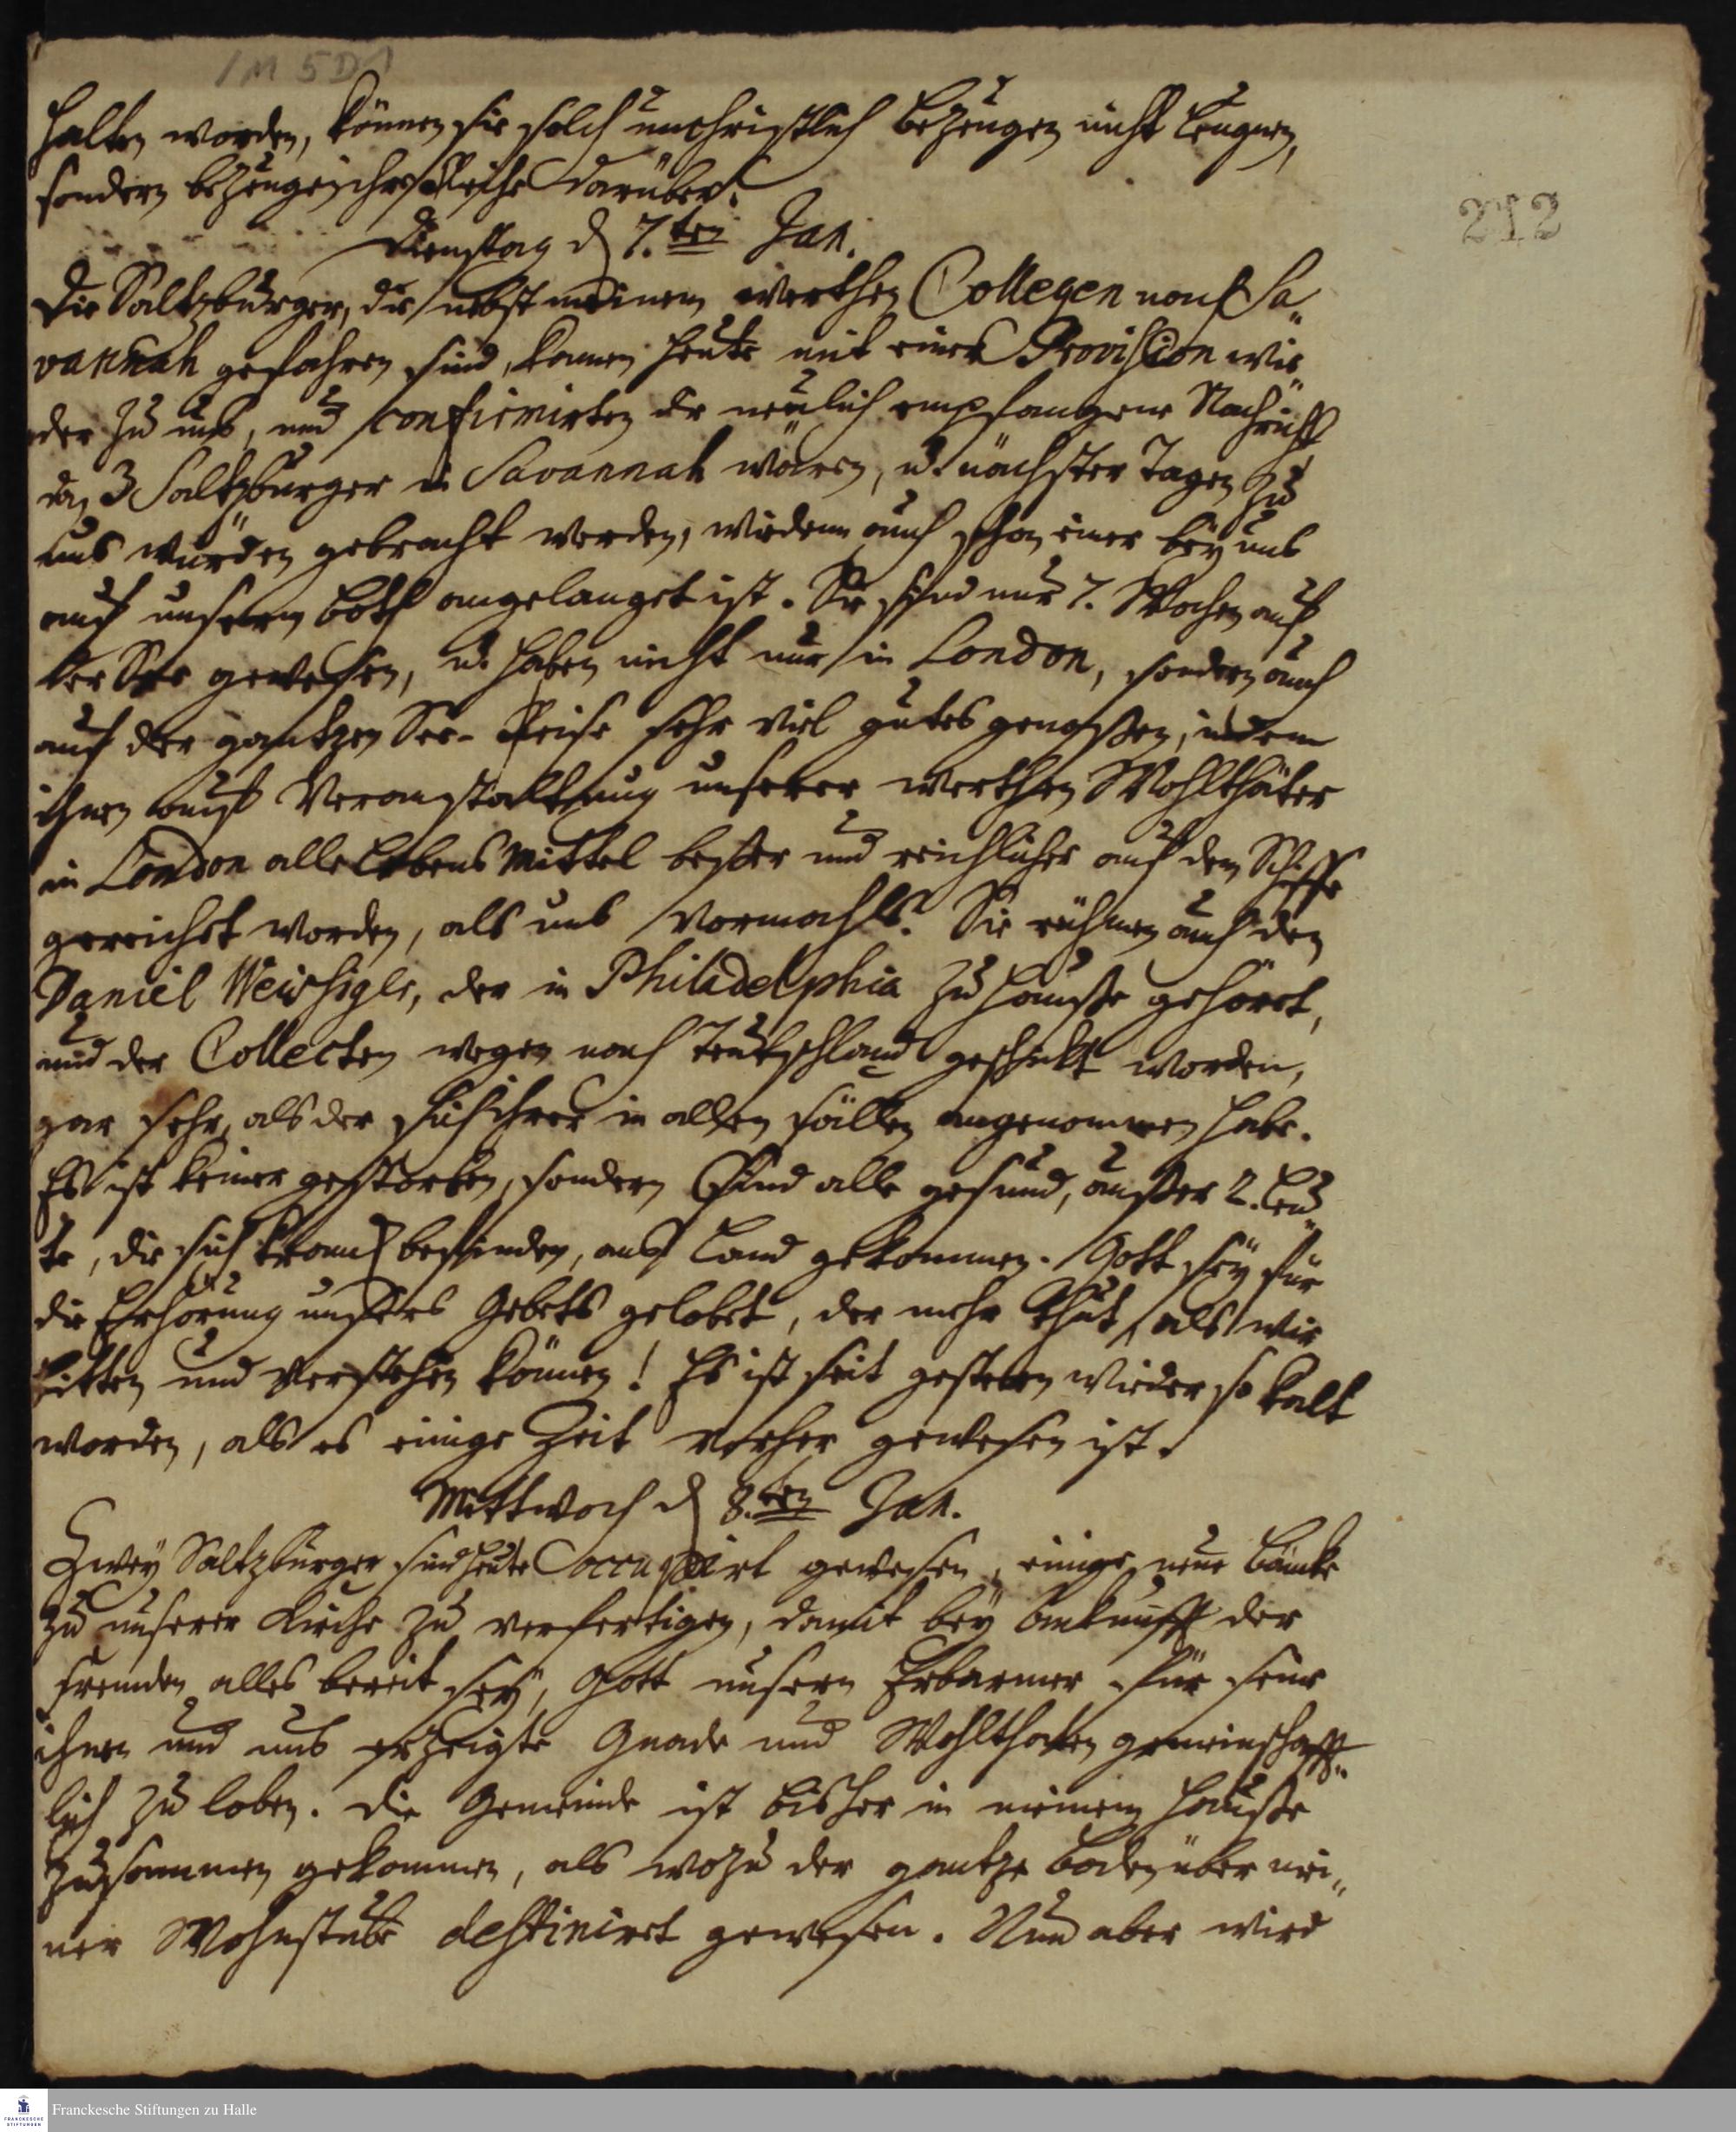 1 M 5 D 1
212
halten worden, können sie solch unchristlich bezeugen nicht leugnen,
sondern bezeugen ihre Reue darüber.
Dienstag d 7.ten Jan.
Die Saltzburger, die nebst meinem werthen Collegen nach Sa„
vannah gefahren sind, kamen heute mit einer Provision wie„
der zu uns, und confirmirten die neulich empfangene Nachricht
daß 3 Saltzburger in Savannah wären, u. nächster Tagen zu
uns würden gebracht werden, wie denn auch schon einer bey uns
auf unserm Both angelanget ist. Sie sind nur 7. Wochen auf
der See gewesen, u. haben nicht nur in London, sondern auch
auf der gantzen See-Reise sehr viel gutes genoßen, indem
ihnen auf Veranstaltung unserer werthen Wohlthäter
in London alle Lebens Mittel beßer und reichlicher auf dem Schiffe
gereichet worden, als uns vormahls. Sie rühmen auch den
Daniel Weisiger, der in Philadelphia zu Hauße gehöret,
und der Collecten wegen nach Teutschland geschickt worden,
gar sehr, als der sich ihrer in allen fällen angenommen habe.
Es ist keiner gestorben, sondern sind alle gesund, außer 2. Leu„
te, die sich kranck befinden, ans Land gekommen. Gott sey für
die Erhörung unsers Gebets gelobet, der mehr thut, als wir
bitten und verstehen können! Es ist seit gestern wieder so kalt
worden, als es einige Zeit vorher gewesen ist.
Mittwoch d 8.ten Jan.
Zwey Saltzburger sind heute occupirt gewesen, einige neue Bäncke
zu unserer Kirche zu verfertigen, damit bey Ankunfft der
fremden alles bereit sey, Gott unsern Erbarmer für seine
ihnen und uns erzeigte Gnade und Wohlthaten gemeinschafft„
lich zu loben. Die Gemeinde ist bisher in meinem Hauße
zusammen gekommen, als wozu der gantze Boden über mei„
ner Wohnstube destiniret gewesen. Nun aber wird
FRANCKESCHE STIFTUNGEN
Franckesche Stiftungen zu Halle